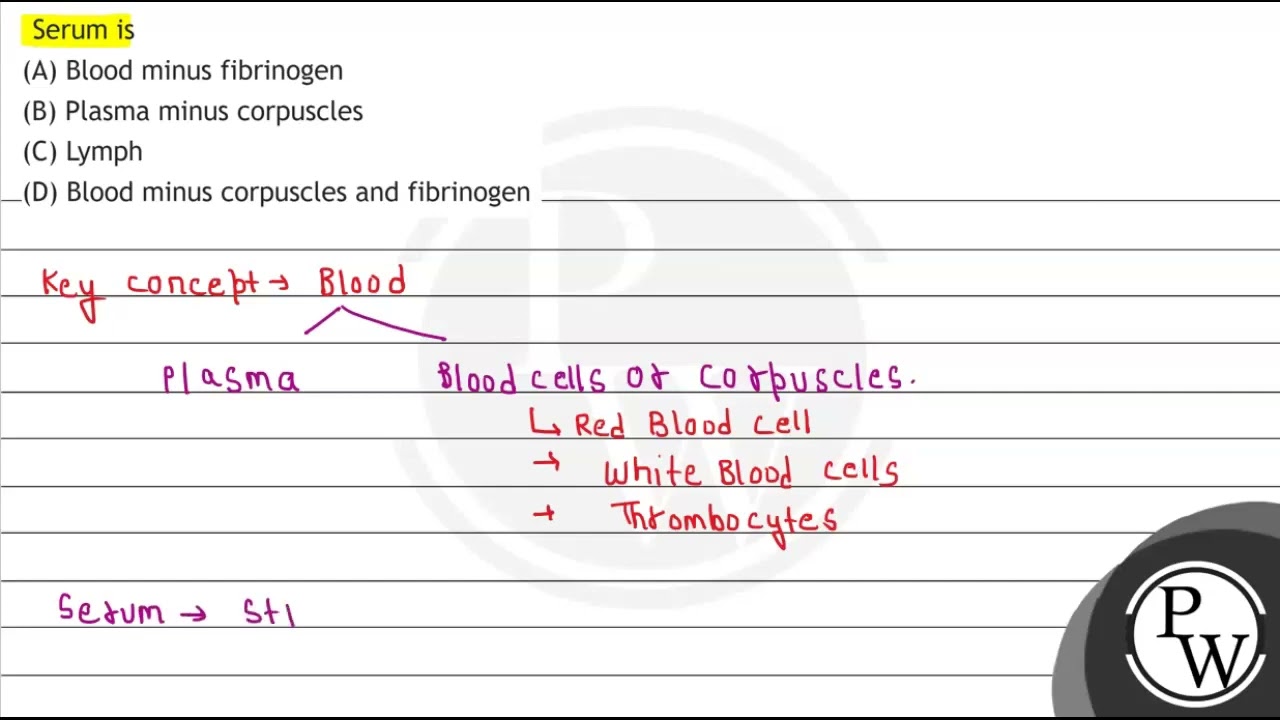 Serum is
(A) Blood minus fibrinogen
(B) Plasma minus corpuscles
(C) Lymph
(D) Blood minus corpuscles and fibrinogen
Key concept → Blood
Plasma Blood cells or Corpuscles.
↳ Red Blood cell
→ White Blood cells
→ Thrombocytes
Serum → St
PW
PW